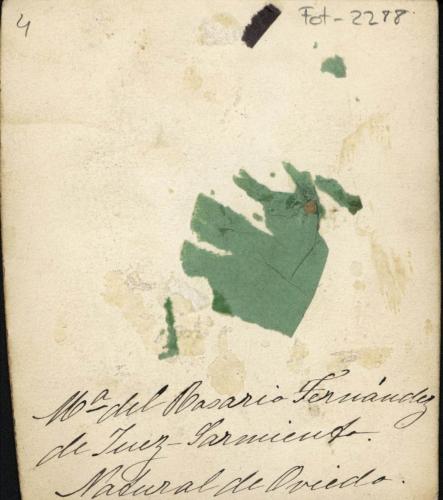 4
Fot-2278
Mª del Rosario Fernández
de Juez-Sarmiento.
Natural de Oviedo.